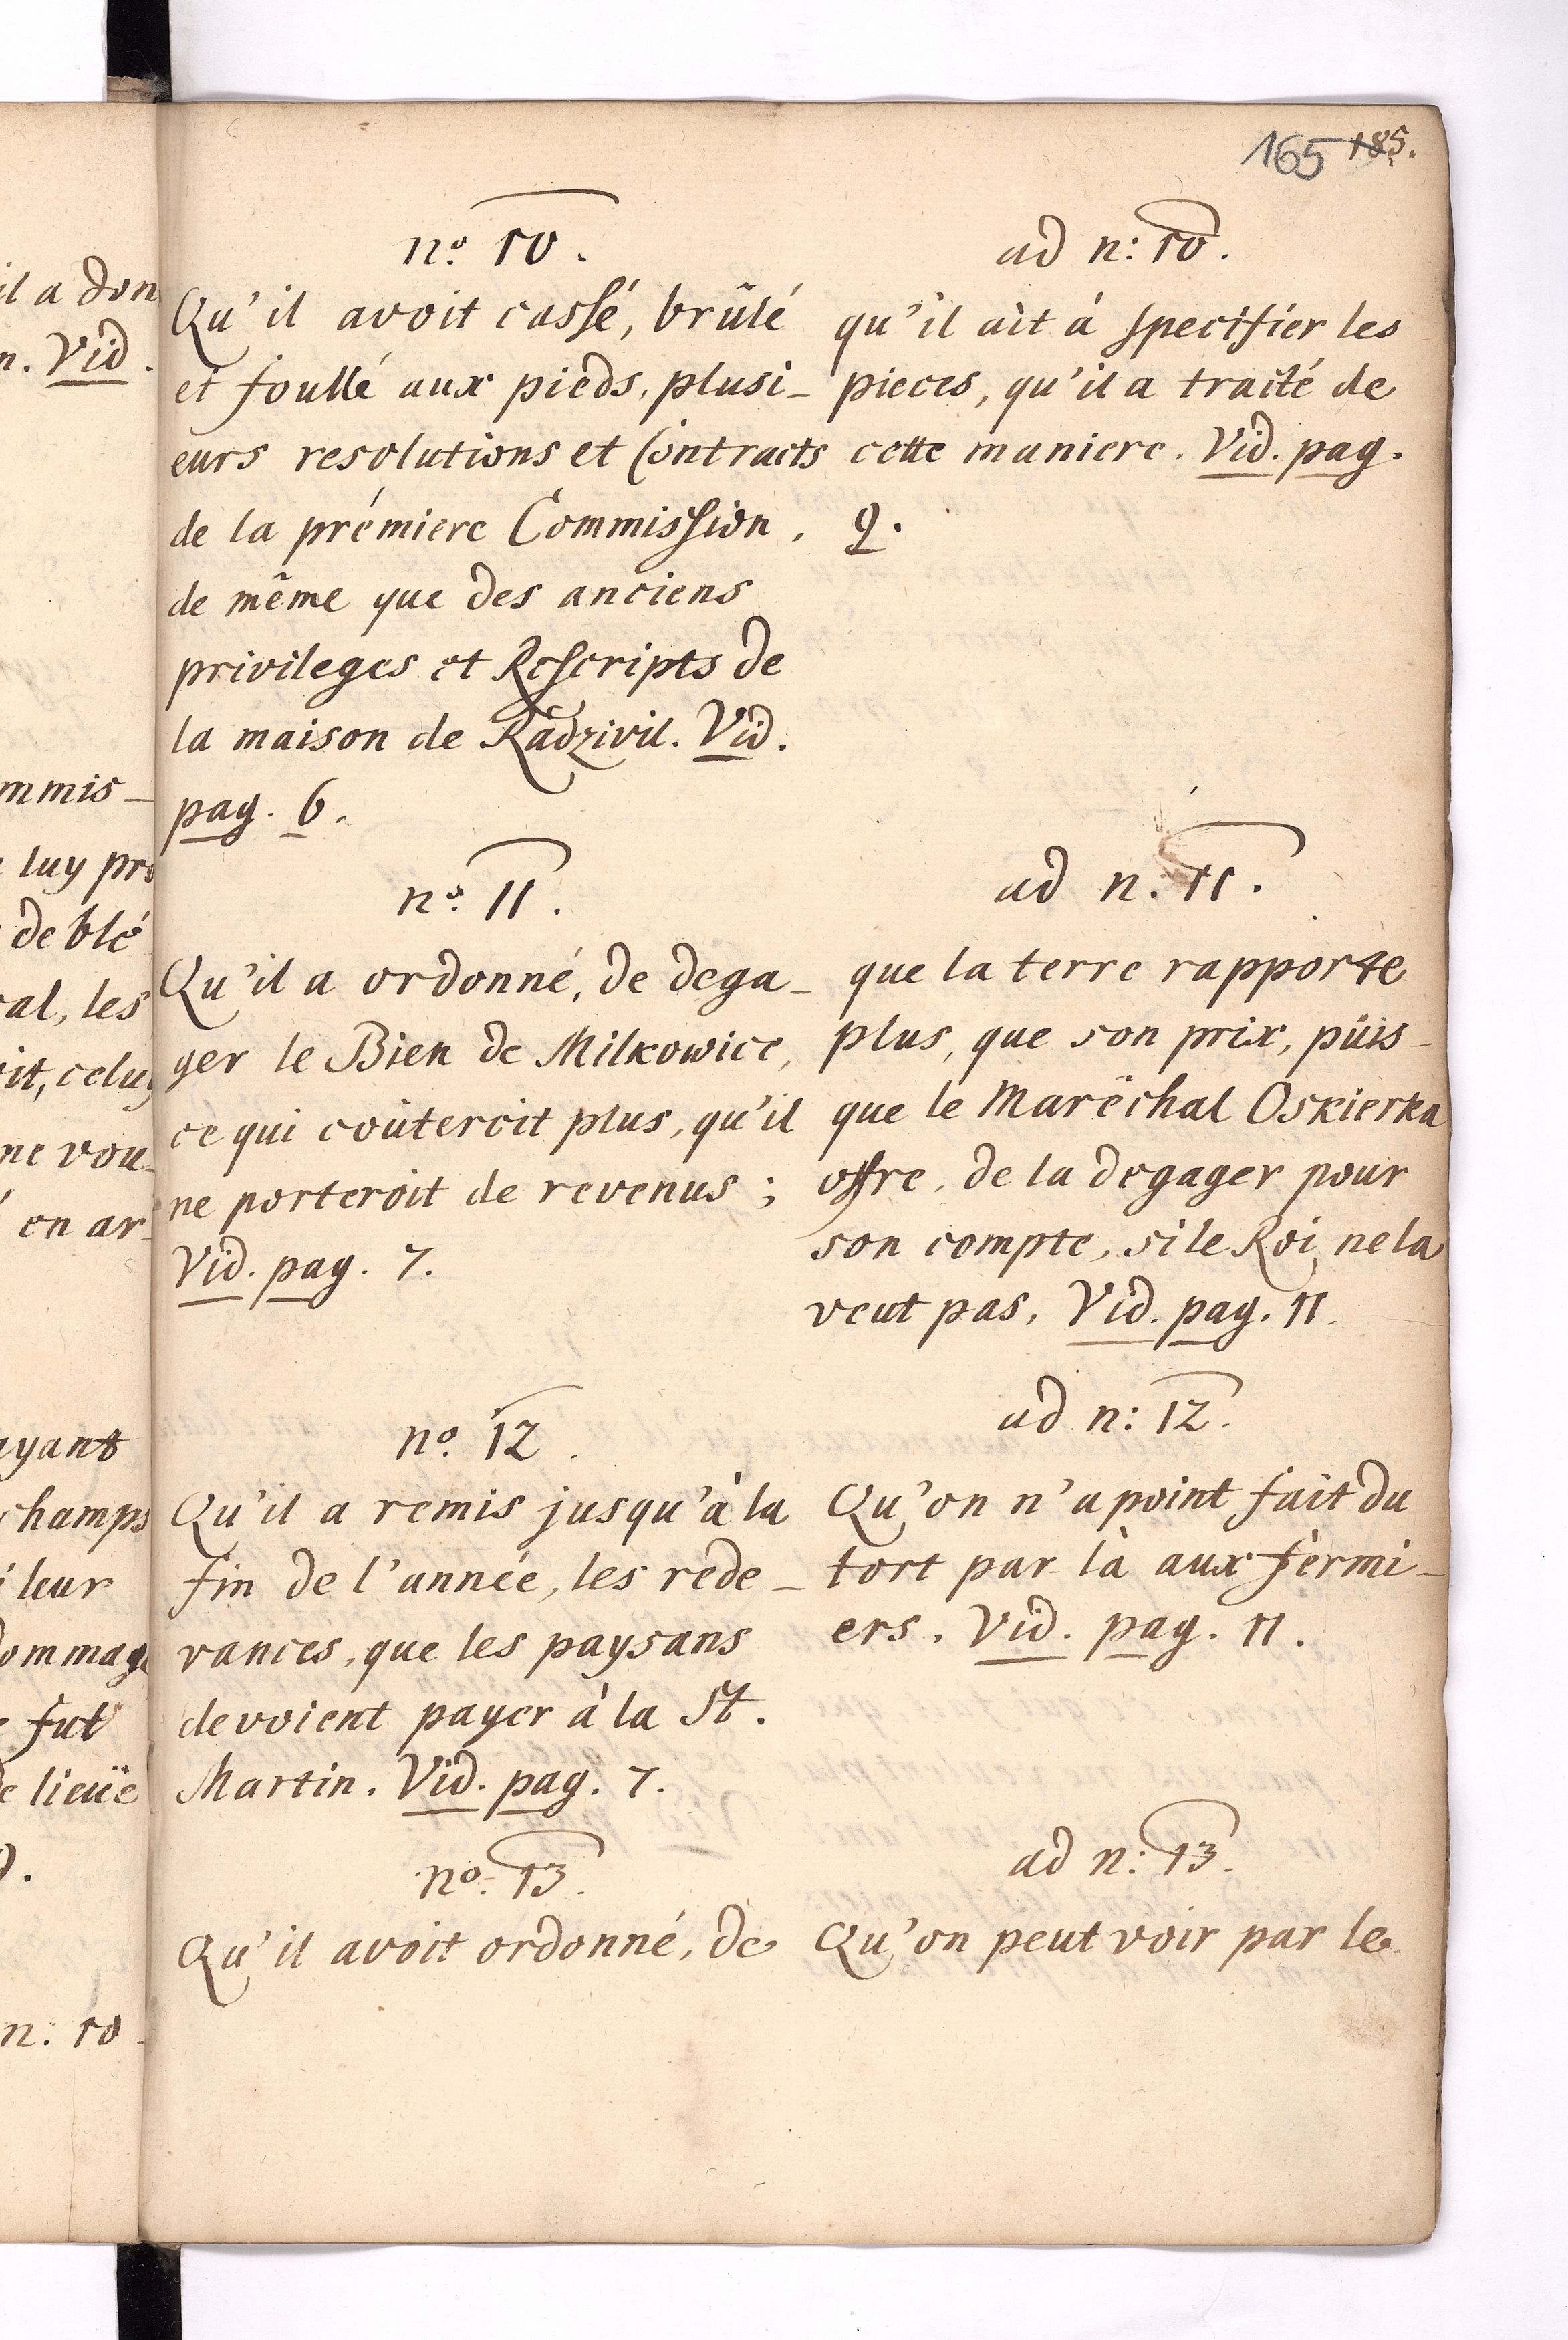 165 185.
il a don
n. Vid.
mmis-
luy pro
de blé
al, les
it, celuy
ne vou-
en ar-
ayant
champs
leur
ommage
fut
lieüe
n. 10.
no. 10.
Qu'il avoit cassé, brûlé
et foullé aux pieds, plusi-
eurs resolutions et Contracts
de la prémiere Commission,
de même que des anciens
privileges et Rescripts de
la maison de Radzivil. Vid.
pag. 6.
ad n: 10.
qu'il ait à specifier les
pieces, qu'il a traité de
cette maniere. Vid. pag.
9.
no. 11.
Qu'il a ordonné, de dega-
ger le Bien de Milkowice,
ce qui coûteroit plus, qu'il
ne porteroit de revenus;
Vid. pag. 7.
ad n. 11.
que la terre rapporte
plus, que son prix, püis-
que le Maréchal Oskierka
offre, de la degager pour
son compte, si le Roi ne la
veut pas. Vid. pag. 11.
no. 12.
Qu'il a remis jusqu'à la
fin de l'année, les rede-
vances, que les paysans
devoient payer à la St.
Martin. Vid. pag. 7.
ad n: 12.
Qu'on n'a point fait du
tort par là aux fermi-
ers. Vid. pag. 11.
no. 13.
Qu'il avoit ordonné, de
ad n: 13.
Qu'on peut voir par le